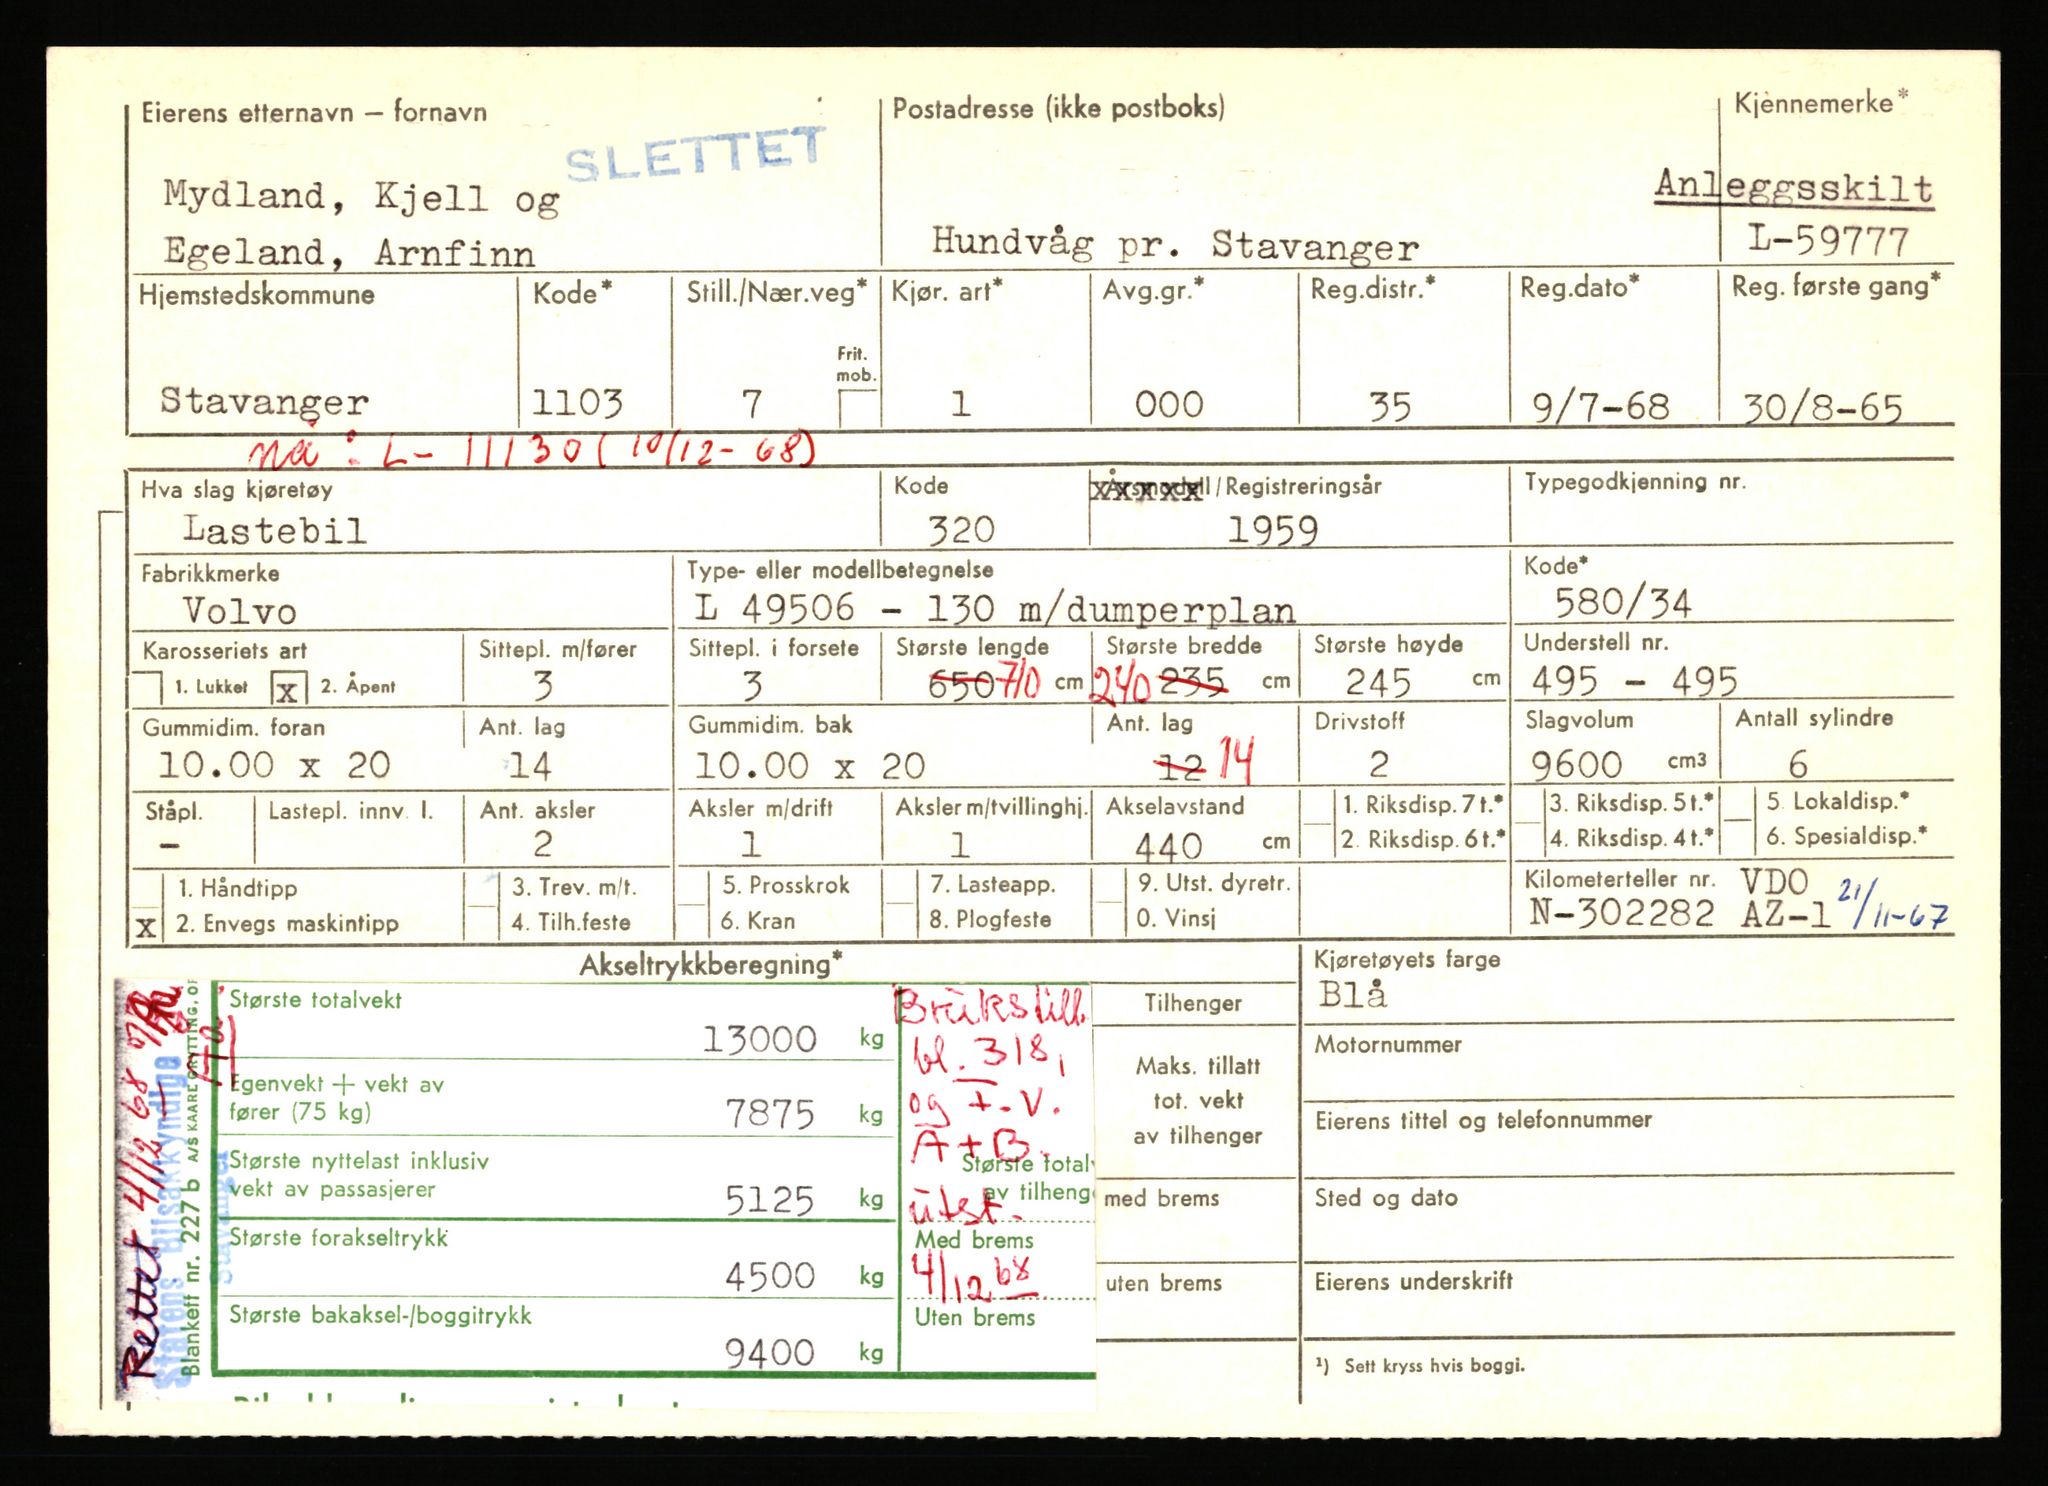 Eierens etternavn – fornavn
SLETTET
Mydland, Kjell og
Egeland, Arnfinn
Postadresse (ikke postboks)
Hundvåg pr. Stavanger
Kjennemerke*
Anleggsskilt
L-59777
Hjemstedskommune Kode* Still./Nær.veg* Kjør. art* Avg.gr.* Reg.distr.* Reg.dato* Reg. første gang*
Frit. mob.
Stavanger 1103 7 1 000 35 9/7-68 30/8-65
nå: L- 11130 (10/12-68)
Hva slag kjøretøy Kode Årsmodell/Registreringsår Typegodkjenning nr.
Lastebil 320 1959
Fabrikkmerke Type- eller modellbetegnelse Kode*
Volvo L 49506 - 130 m/dumperplan 580/34
Karosseriets art Sittepl. m/fører Sittepl. i forsete Største lengde Største bredde Største høyde Understell nr.
1. Lukket x 2. Åpent 3 3 650 710 cm 240 235 cm 245 cm 495 - 495
Gummidim. foran Ant. lag Gummidim. bak Ant. lag Drivstoff Slagvolum Antall sylindre
10.00 x 20 14 10.00 x 20 12 14 2 9600 cm3 6
Ståpl. Lastepl. innv. l. Ant. aksler Aksler m/drift Aksler m/tvillinghj. Akselavstand 1. Riksdisp. 7 t.* 3. Riksdisp. 5 t.* 5. Lokaldisp.*
- 2 1 1 440 cm 2. Riksdisp. 6 t.* 4. Riksdisp. 4 t.* 6. Spesialdisp.*
1. Håndtipp 3. Trev. m/t. 5. Prosskrok 7. Lasteapp. 9. Utst. dyretr. Kilometerteller nr. VDO
x 2. Envegs maskintipp 4. Tilh.feste 6. Kran 8. Plogfeste 0. Vinsj N-302282 AZ-1 21/11-67
Akseltrykkberegning*
Kjøretøyets farge
Blå
Motornummer
Eierens tittel og telefonnummer
Sted og dato
Eierens underskrift
¹) Sett kryss hvis boggi.
Største totalvekt
13000 kg
Egenvekt + vekt av
fører (75 kg) 7875 kg
Største nyttelast inklusiv
vekt av passasjerer 5125 kg
Største forakseltrykk
4500 kg
Største bakaksel-/boggitrykk
9400 kg
Brukstill.
bl. 318,
og +.V.
A+B.
utst.
4/12 68
Største total
av tilheng
Med brems
Uten brems
Tilhenger
Maks. tillatt
tot. vekt
av tilhenger
med brems
uten brems
Rettet 4/12 68
Statens Bilsakkyndige
Stavanger
Blankett nr. 227 b A/S KAARE GRYTTING, OR